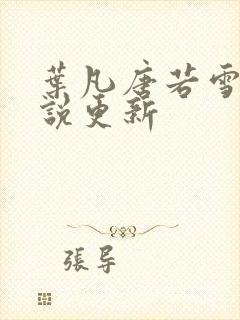 葉凡唐若雪
說更新
張导